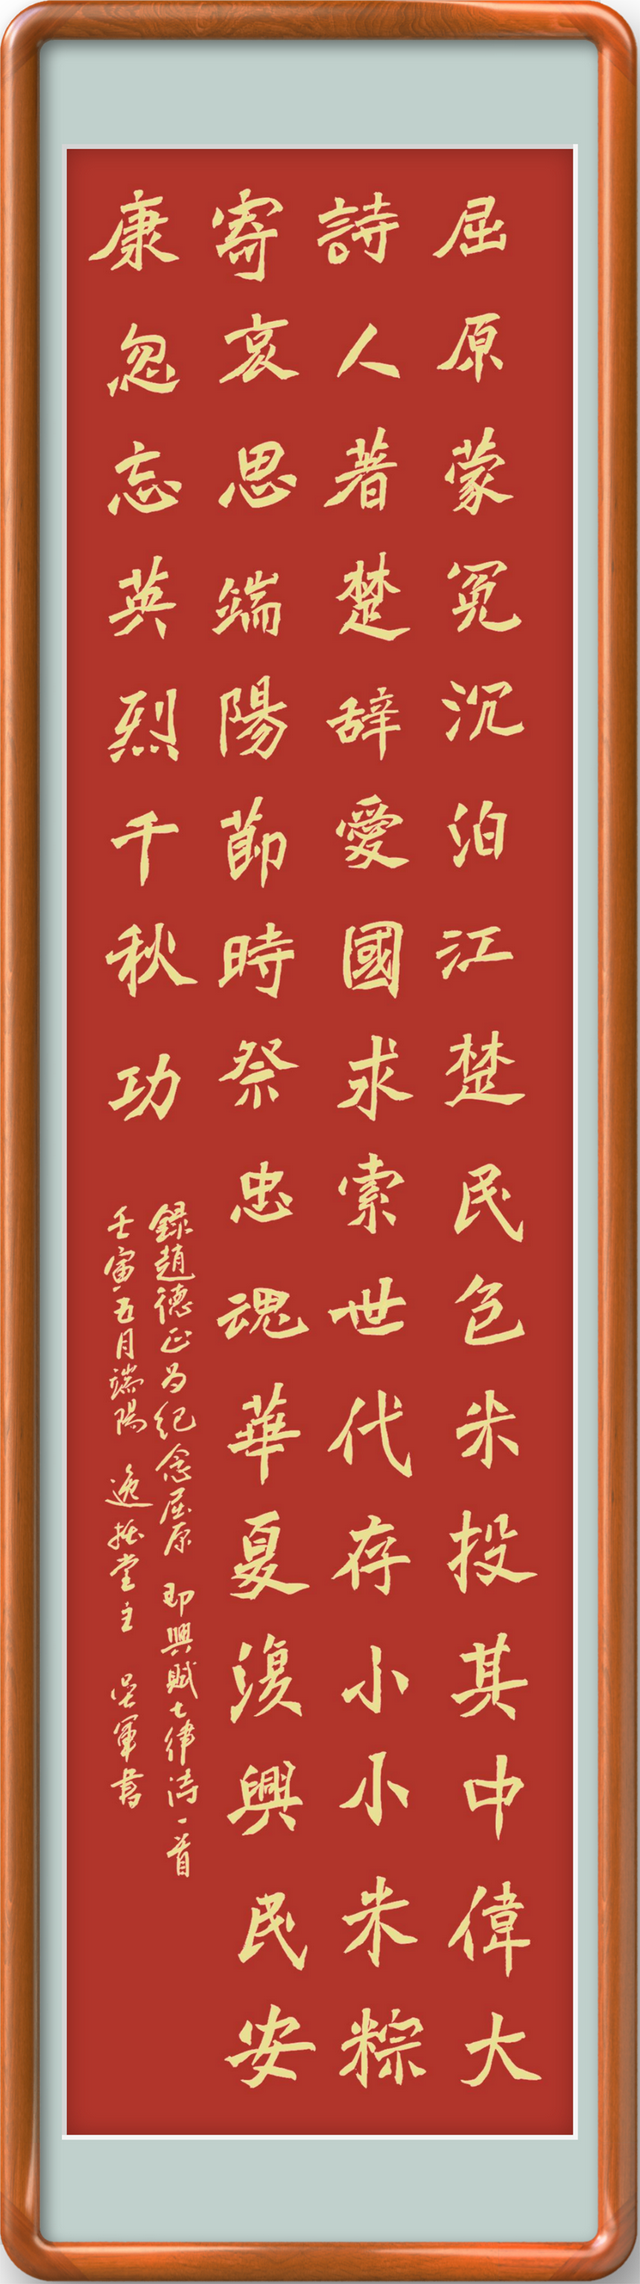 屈原蒙冤沉泊江楚民包米投其中偉大
詩人著楚辞愛國求索世代存小小米粽
寄哀思端陽節時祭忠魂華夏復興民安
康忽忘英烈千秋功
録趙德正為紀念屈原 即興賦七律诗一首
壬寅五月端陽 逸 堂主 吴軍書